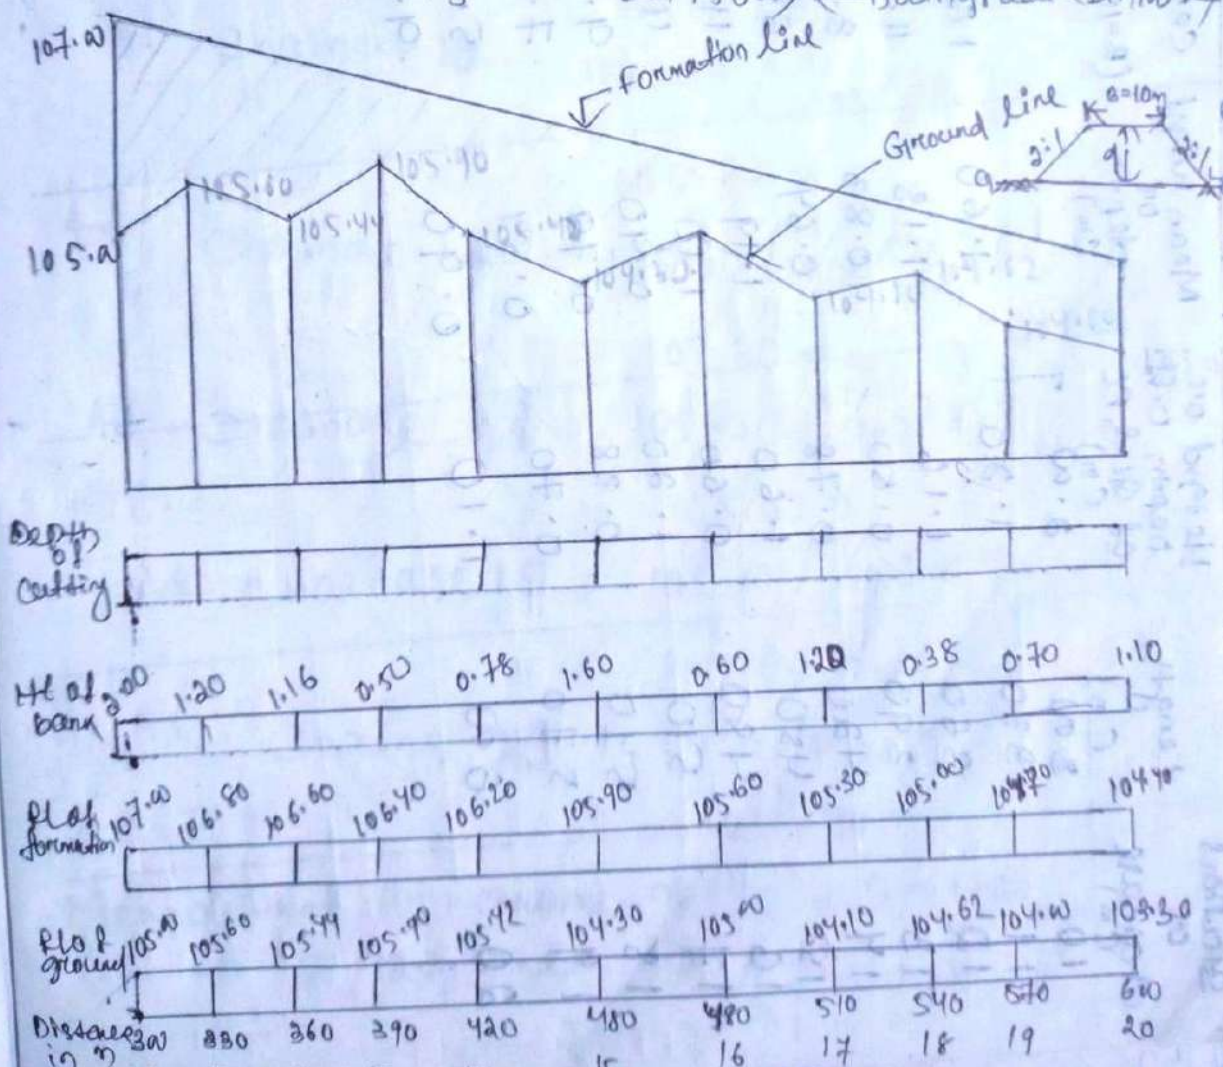 107.00
Formation line
Ground line
B=10m
2:1
d
2:1
105.60
105.44
105.90
105.42
104.30
105.0
Depth of cutting
Ht of bank
2.00 1.20 1.16 0.50 0.78 1.60 0.60 1.20 0.38 0.70 1.10
RL of formation
107.00 106.80 106.60 106.40 106.20 105.90 105.60 105.30 105.00 104.70 104.40
RL of ground
105.00 105.60 105.44 105.90 105.42 104.30 105.00 104.10 104.62 104.00 103.30
Distance in m
300 330 360 390 420 480 480 510 540 570 600
15 16 17 18 19 20